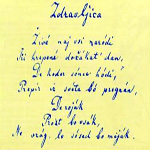 Zdravljica
Živé naj vsi naródi
Ki hrepené dočakat' dan,
De koder sonce hodi,
Prepir iz svéta bó pregnan,
De rojak
Prost bo vsak,
Ne vrag, le sósed bo mejak.